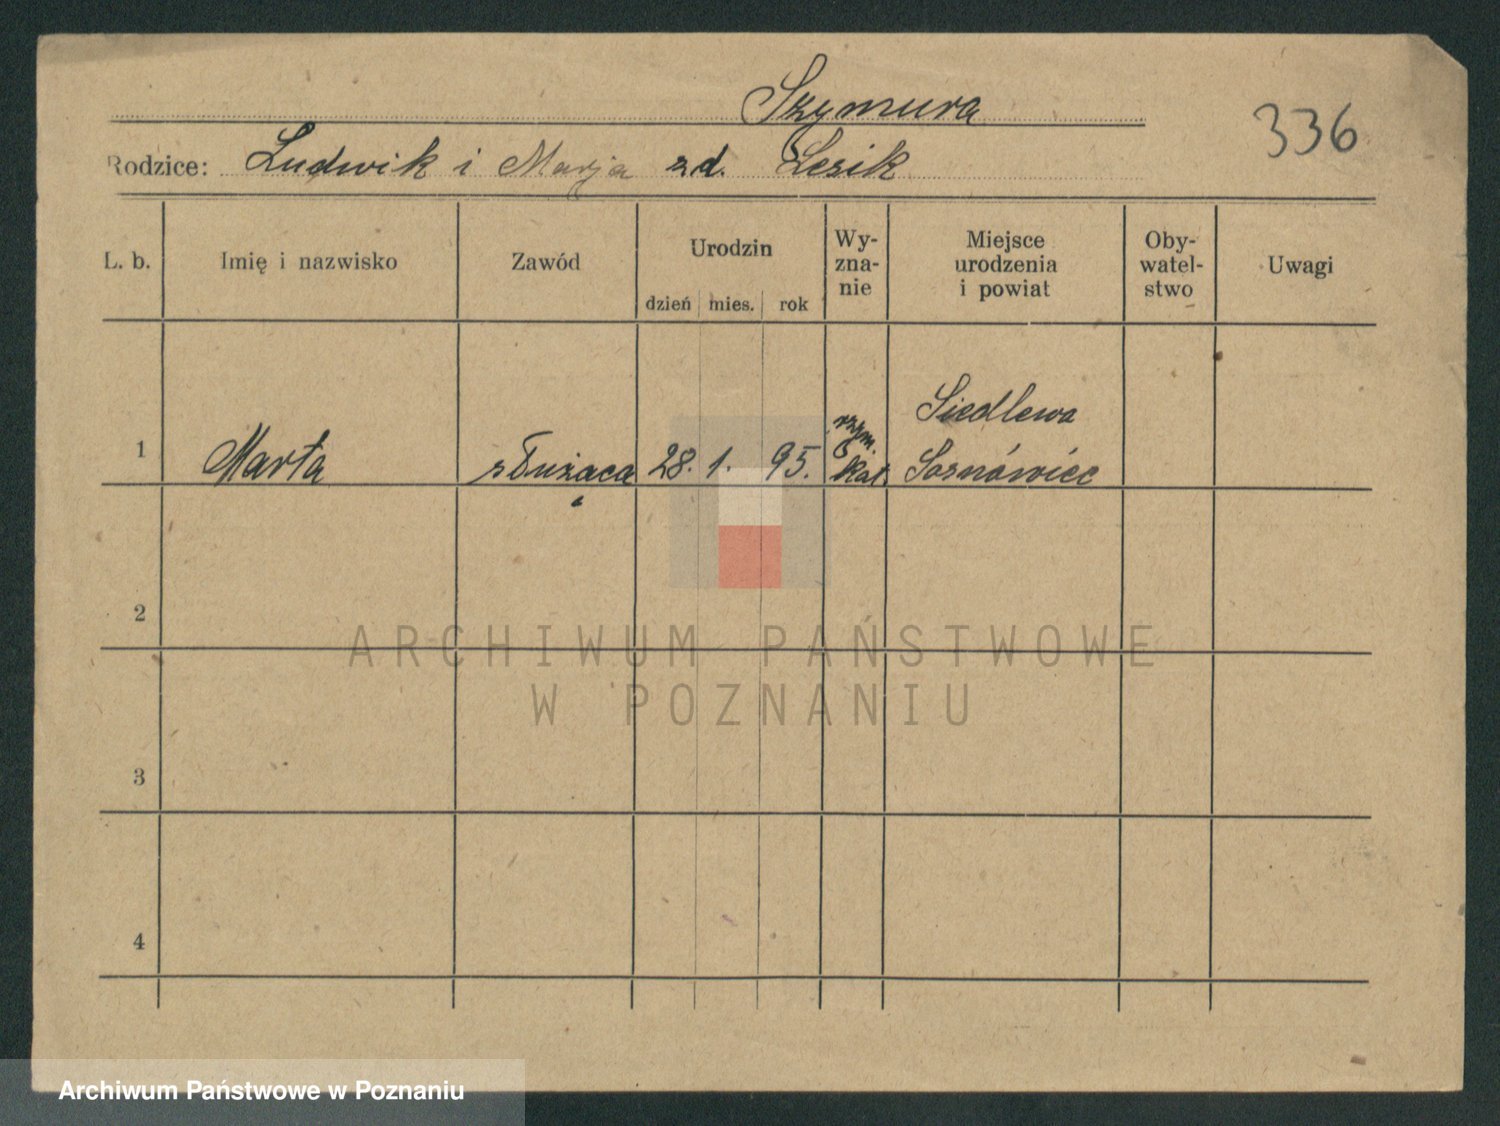 Szymura
336
Rodzice: Ludwik i Marja zd. Lesik
L. b. Imię i nazwisko Zawód Urodzin dzień mies. rok Wy-zna-nie Miejsce urodzenia i powiat Oby-watel-stwo Uwagi
1 Marta służąca 28. 1. 95. rzym. kat. Siedlewa Sosnówiec
2
3
4
ARCHIWUM PAŃSTWOWE
W POZNANIU
Archiwum Państwowe w Poznaniu